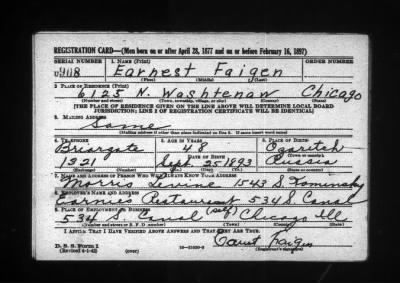 REGISTRATION CARD—(Men born on or after April 28, 1877 and on or before February 16, 1897)
SERIAL NUMBER 1. NAME (Print) ORDER NUMBER
U 9118 Earnest Faigen
(First) (Middle) (Last)
2. PLACE OF RESIDENCE (Print)
6125 N. Washtenaw Chicago
(Number and street) (Town, township, village, or city) (County) (State)
[THE PLACE OF RESIDENCE GIVEN ON THE LINE ABOVE WILL DETERMINE LOCAL BOARD
JURISDICTION; LINE 2 OF REGISTRATION CERTIFICATE WILL BE IDENTICAL]
3. MAILING ADDRESS
Same
[Mailing address if other than place indicated on line 2. If same insert word same]
4. TELEPHONE 5. AGE IN YEARS 6. PLACE OF BIRTH
Briargate 48 Ozaretch
DATE OF BIRTH (Town or county)
1321 Sept. 25 1893 Russia
(Exchange) (Number) (Mo.) (Day) (Yr.) (State or country)
7. NAME AND ADDRESS OF PERSON WHO WILL ALWAYS KNOW YOUR ADDRESS
Morris Levine 1543 S. Kominsky
8. EMPLOYER'S NAME AND ADDRESS
Earnies Restaurant 534 S. Canal
9. PLACE OF EMPLOYMENT OR BUSINESS (self)
534 S. Canal Chicago Ill
(Number and street or R. F. D. number) (Town) (County) (State)
I AFFIRM THAT I HAVE VERIFIED ABOVE ANSWERS AND THAT THEY ARE TRUE.
D. S. S. Form 1
(Revised 4-1-42) (over) Faigen
(Registrant's signature)